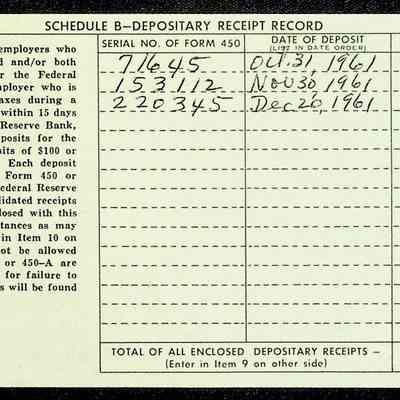 SCHEDULE B—DEPOSITARY RECEIPT RECORD
employers who
d and/or both
r the Federal
mployer who is
axes during a
within 15 days
Reserve Bank,
posits for the
sits of $100 or
Each deposit
Form 450 or
ederal Reserve
lidated receipts
losed with this
tances as may
in Item 10 on
ot be allowed
or 450-A are
for failure to
s will be found
SERIAL NO. OF FORM 450
DATE OF DEPOSIT
(LIST IN DATE ORDER)
71645 Oct. 31, 1961
153112 Nov 30, 1961
220345 Dec 26, 1961
TOTAL OF ALL ENCLOSED DEPOSITARY RECEIPTS —
(Enter in Item 9 on other side)